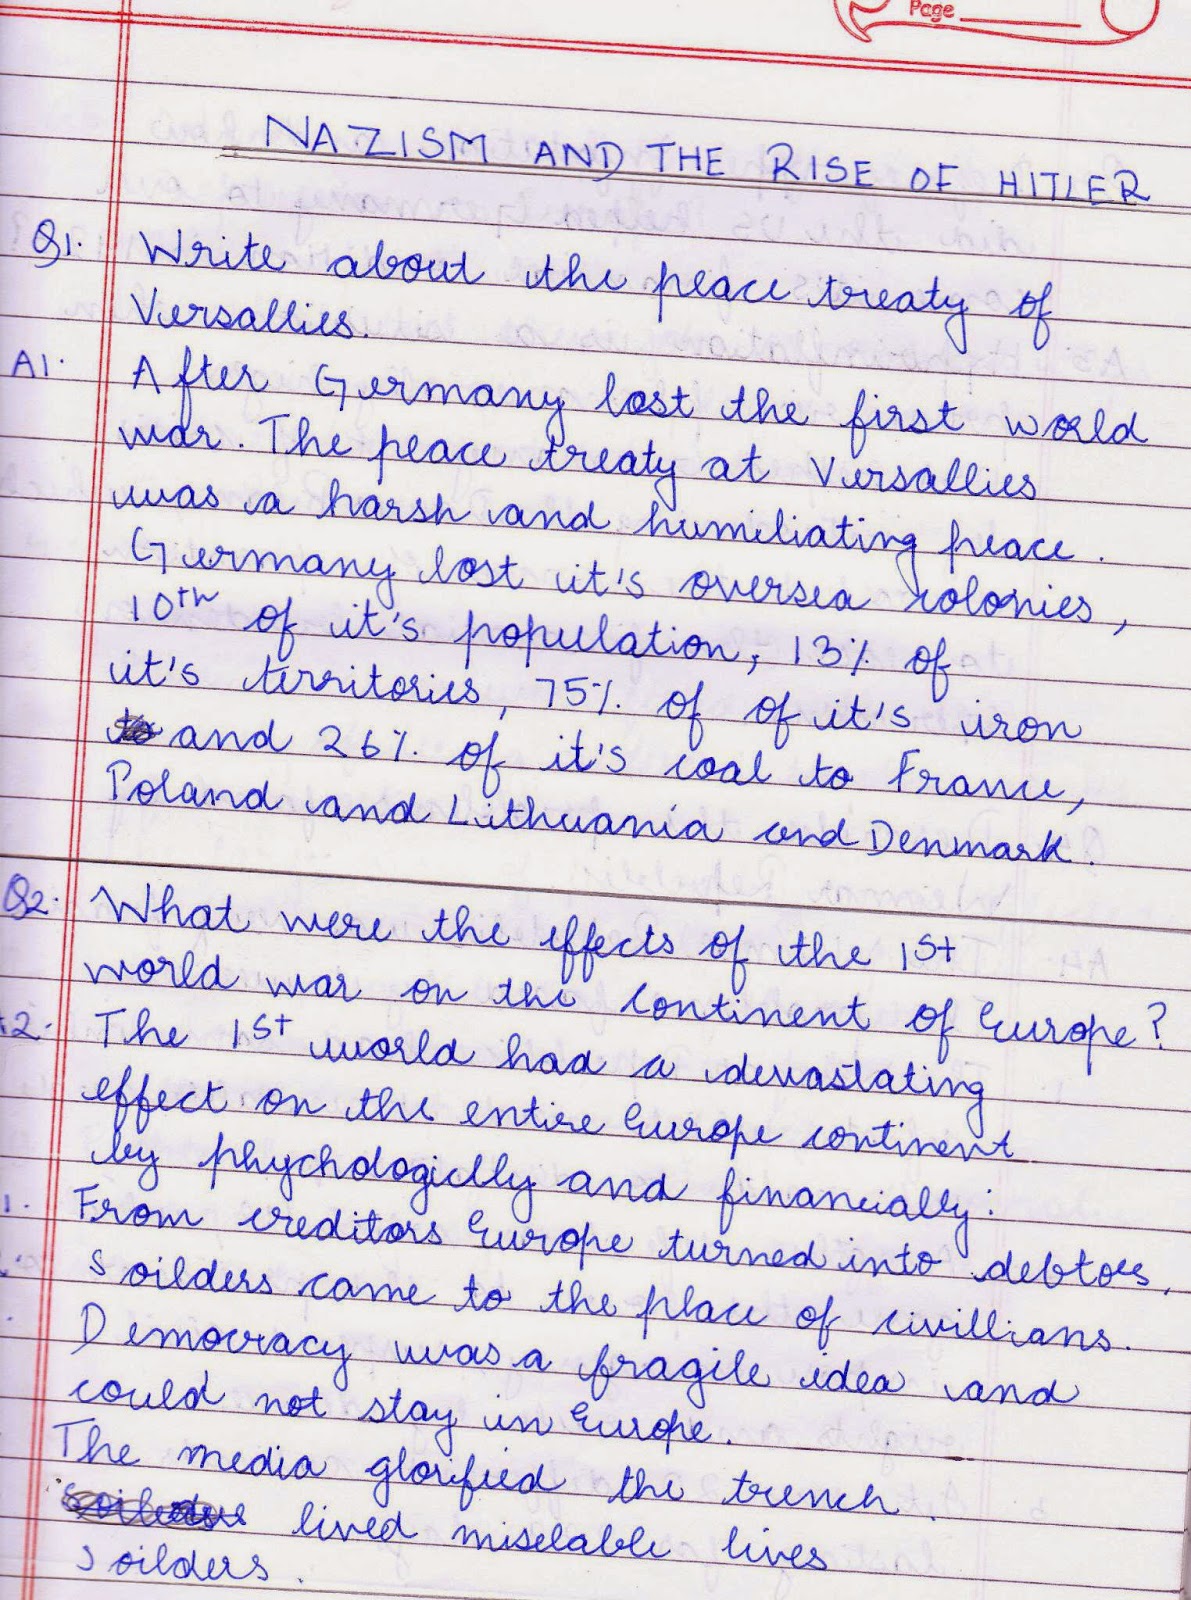 Page
NAZISM AND THE RISE OF HITLER
Q1. Write about the peace treaty of
Versallies.
A1. After Germany lost the first world
war. The peace treaty at Versallies
was a harsh and humiliating peace.
Germany lost it's oversea colonies,
10th of it's population, 13% of
it's territories, 75% of of it's iron
and 26% of it's coal to France,
Poland and Lithuania and Denmark.
Q2. What were the effects of the 1st
world war on the continent of Europe?
2. The 1st world had a devastating
effect on the entire Europe continent
by phychologiclly and financially:
1. From creditors Europe turned into debtors.
Soilders came to the place of civillians.
Democracy was a fragile idea and
could not stay in Europe.
The media glorified the trench.
lived miselable lives
soilders.